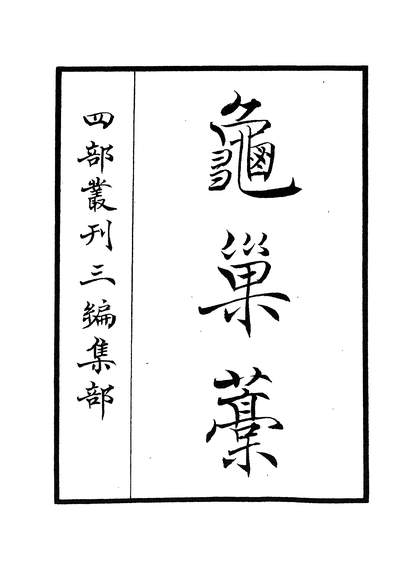 龜巢藳
四部叢刊三編集部